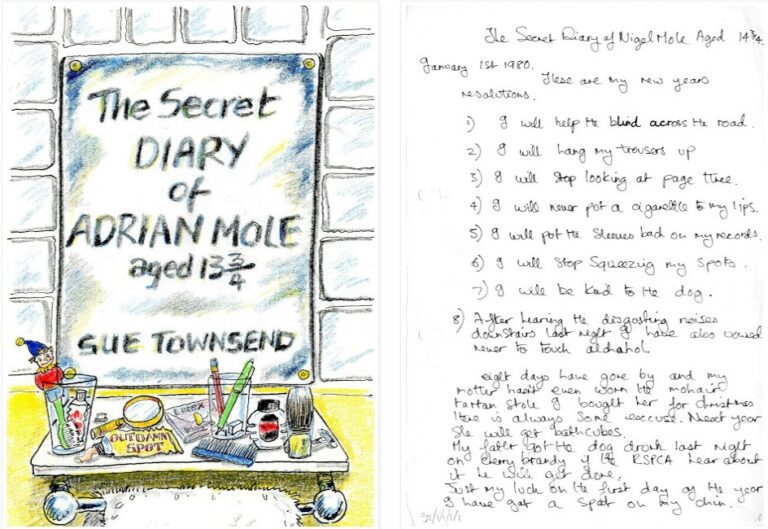 The Secret
DIARY
of
ADRIAN MOLE
aged 13 3/4
SUE TOWNSEND
OUT DAMN
SPOT
The Secret Diary of Nigel Mole Aged 14 3/4.
January 1st 1980.
These are my new years
resolutions.
1) I will help the blind across the road.
2) I will hang my trousers up
3) I will stop looking at page three.
4) I will never put a cigarette to my lips.
5) I will put the sleeves back on my records.
6) I will stop squeezing my spots.
7) I will be kind to the dog.
8) After hearing the disgusting noises
downstairs last night I have also vowed
never to touch alchahol.
eight days have gone by and my
mother hasn't even worn the mohair
tartan stole I bought her for Christmas
there is always some excuse. Next year
she will get bathcubes.
My father got the dog drunk last night
on cherry brandy if the RSPCA hear about
it he will get done.
Just my luck on the first day of this year
I have got a spot on my chin.
ST/1/1/1/1